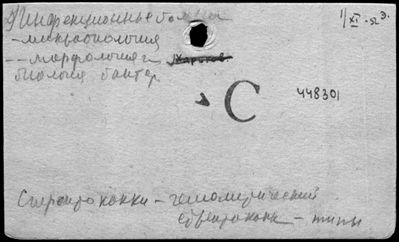 Инфекционные болезни
1/XI-52 э.
– микробиология
– – морфология и Харьков
биология бактер.
С 448301
Стрептококки – гемолитический
стрептококк – типы